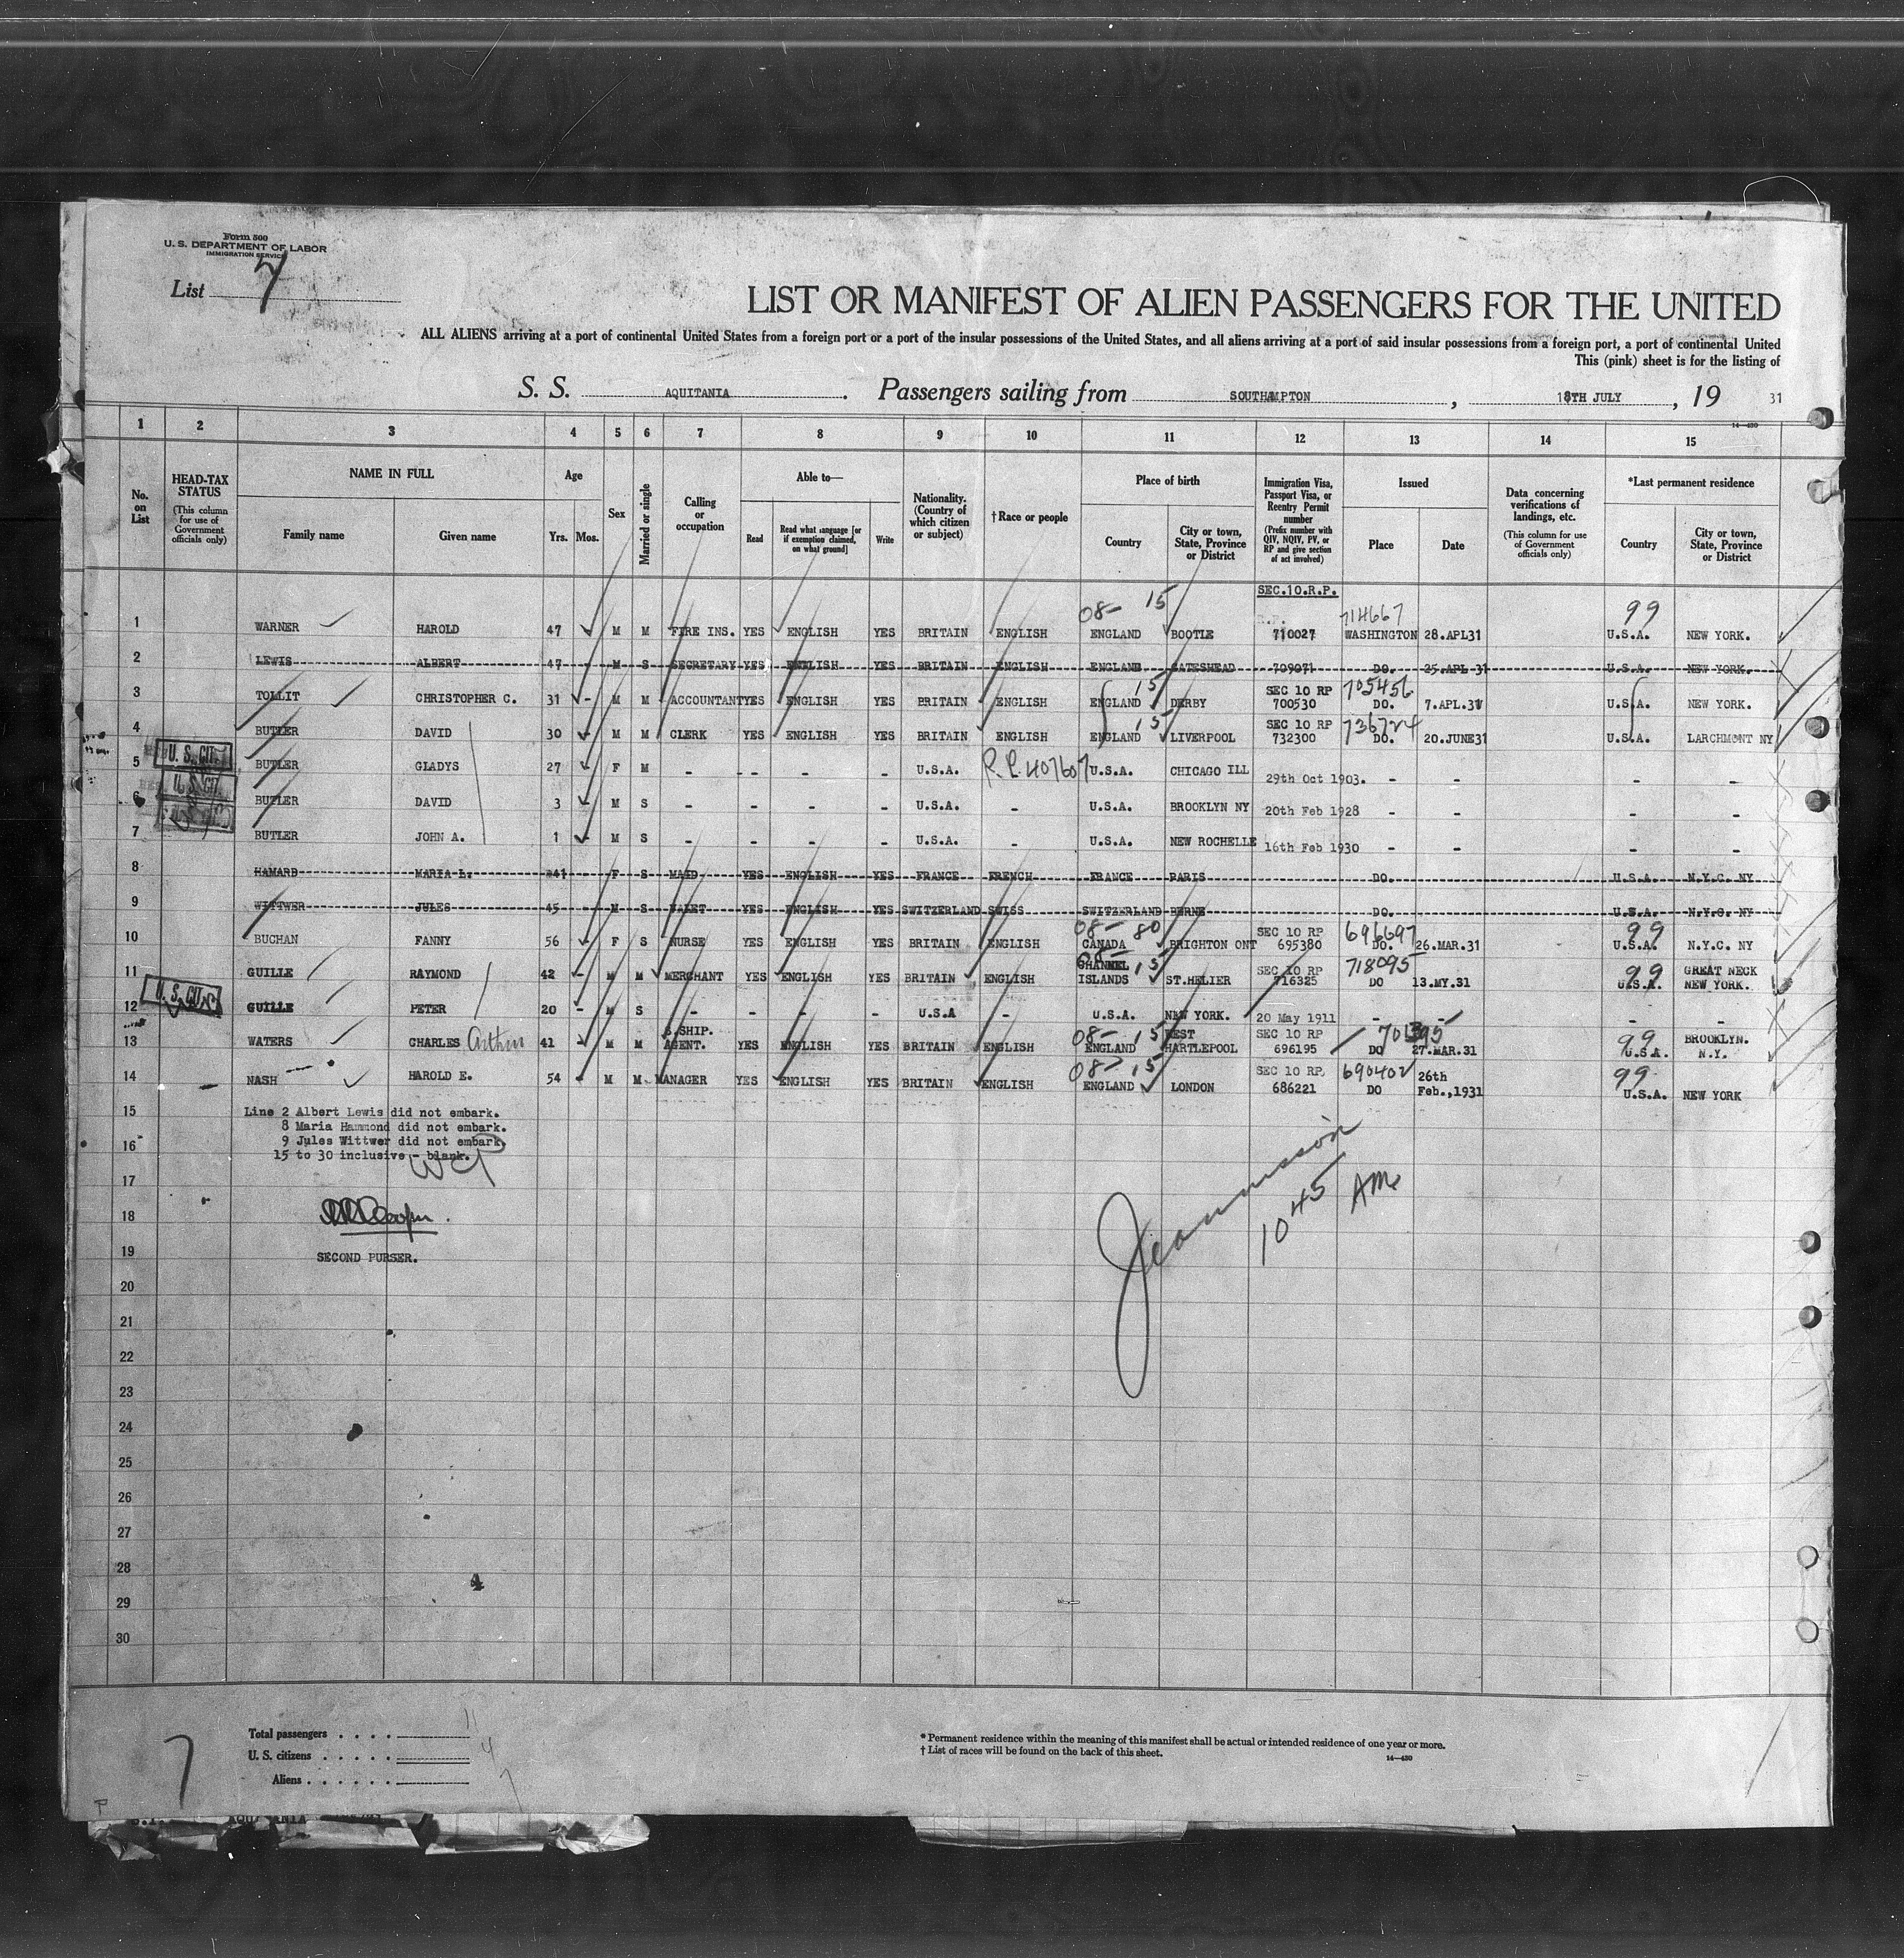 Form 500
U. S. DEPARTMENT OF LABOR
IMMIGRATION SERVICE
List 7
LIST OR MANIFEST OF ALIEN PASSENGERS FOR THE UNITED
ALL ALIENS arriving at a port of continental United States from a foreign port or a port of the insular possessions of the United States, and all aliens arriving at a port of said insular possessions from a foreign port, a port of continental United
This (pink) sheet is for the listing of
S. S. AQUITANIA. Passengers sailing from SOUTHAMPTON, 18TH JULY, 19 31
14-430
1 2 3 4 5 6 7 8 9 10 11 12 13 14 15
No. on List
HEAD-TAX STATUS
(This column for use of Government officials only)
NAME IN FULL
Family name Given name
Age
Yrs. Mos.
Sex
Married or single
Calling or occupation
Able to—
Read
Read what language [or if exemption claimed, on what ground]
Write
Nationality. (Country of which citizen or subject)
†Race or people
Place of birth
Country
City or town, State, Province or District
Immigration Visa, Passport Visa, or Reentry Permit number
(Prefix number with QIV, NQIV, PV, or RP and give section of act involved)
Issued
Place Date
Data concerning verifications of landings, etc.
(This column for use of Government officials only)
*Last permanent residence
Country
City or town, State, Province or District
SEC.10.R.P.
08- 15 714667 99
1 WARNER HAROLD 47 M M FIRE INS. YES ENGLISH YES BRITAIN ENGLISH ENGLAND BOOTLE 710027 WASHINGTON 28.APL31 U.S.A. NEW YORK.
2 LEWIS ALBERT 47 M S SECRETARY YES ENGLISH YES BRITAIN ENGLISH ENGLAND GATESHEAD 709071 DO. 25.APL 31 U.S.A. NEW YORK.
15 SEC 10 RP 705456
3 TOLLIT CHRISTOPHER C. 31 - M M ACCOUNTANT YES ENGLISH YES BRITAIN ENGLISH ENGLAND DERBY 700530 DO. 7.APL.31 U.S.A. NEW YORK.
15 SEC 10 RP 736724
4 BUTLER DAVID 30 - M M CLERK YES ENGLISH YES BRITAIN ENGLISH ENGLAND LIVERPOOL 732300 DO. 20.JUNE31 U.S.A. LARCHMONT NY
U. S. CIT.
5 BUTLER GLADYS 27 F M - - - - - U.S.A. P.P. 407607 U.S.A. CHICAGO ILL 29th Oct 1903. - - - -
U. S. CIT.
6 BUTLER DAVID 3 M S - - - - U.S.A. - U.S.A. BROOKLYN NY 20th Feb 1928 - - - -
7 BUTLER JOHN A. 1 M S - - - - U.S.A. - U.S.A. NEW ROCHELLE 16th Feb 1930 - - - -
8 HAMARD MARIA L. 41 F S MAID YES ENGLISH YES FRANCE FRENCH FRANCE PARIS DO. U.S.A. N.Y.C. NY
9 WITTWER JULES 45 M S VALET YES ENGLISH YES SWITZERLAND SWISS SWITZERLAND BERNE DO. U.S.A. N.Y.C. NY
08- 80 SEC 10 RP 696697 99
10 BUCHAN FANNY 56 - F S NURSE YES ENGLISH YES BRITAIN ENGLISH CANADA BRIGHTON ONT 695380 DO. 26.MAR.31 U.S.A. N.Y.C. NY
08- 15 SEC 10 RP 718095 99
11 GUILLE RAYMOND 42 - M M MERCHANT YES ENGLISH YES BRITAIN ENGLISH CHANNEL ISLANDS ST.HELIER 716325 DO 13.MY.31 U.S.A. GREAT NECK NEW YORK.
U. S. CIT.
12 GUILLE PETER 20 - M S - - - - U.S.A - U.S.A. NEW YORK. 20 May 1911 - - - -
08- 15 SEC 10 RP 99
13 WATERS CHARLES Arthur 41 M M S.SHIP. AGENT. YES ENGLISH YES BRITAIN ENGLISH ENGLAND WEST HARTLEPOOL 696195 DO 27.MAR.31 U.S.A. BROOKLYN. N.Y.
08- 15 SEC 10 RP. 690402 99
14 NASH HAROLD E. 54 - M M. MANAGER YES ENGLISH YES BRITAIN ENGLISH ENGLAND LONDON 686221 DO 26th Feb.,1931 U.S.A. NEW YORK
15 Line 2 Albert Lewis did not embark.
8 Maria Hammond did not embark.
16 9 Jules Wittwer did not embark.
15 to 30 inclusive - blank.
17
18
19 SECOND PURSER.
10 45 AM
20
21
22
23
24
25
26
27
28
4
29
30
7
Total passengers . . . . 11
U. S. citizens . . . . . 4
Aliens . . . . . . 7
* Permanent residence within the meaning of this manifest shall be actual or intended residence of one year or more.
† List of races will be found on the back of this sheet.
14-430